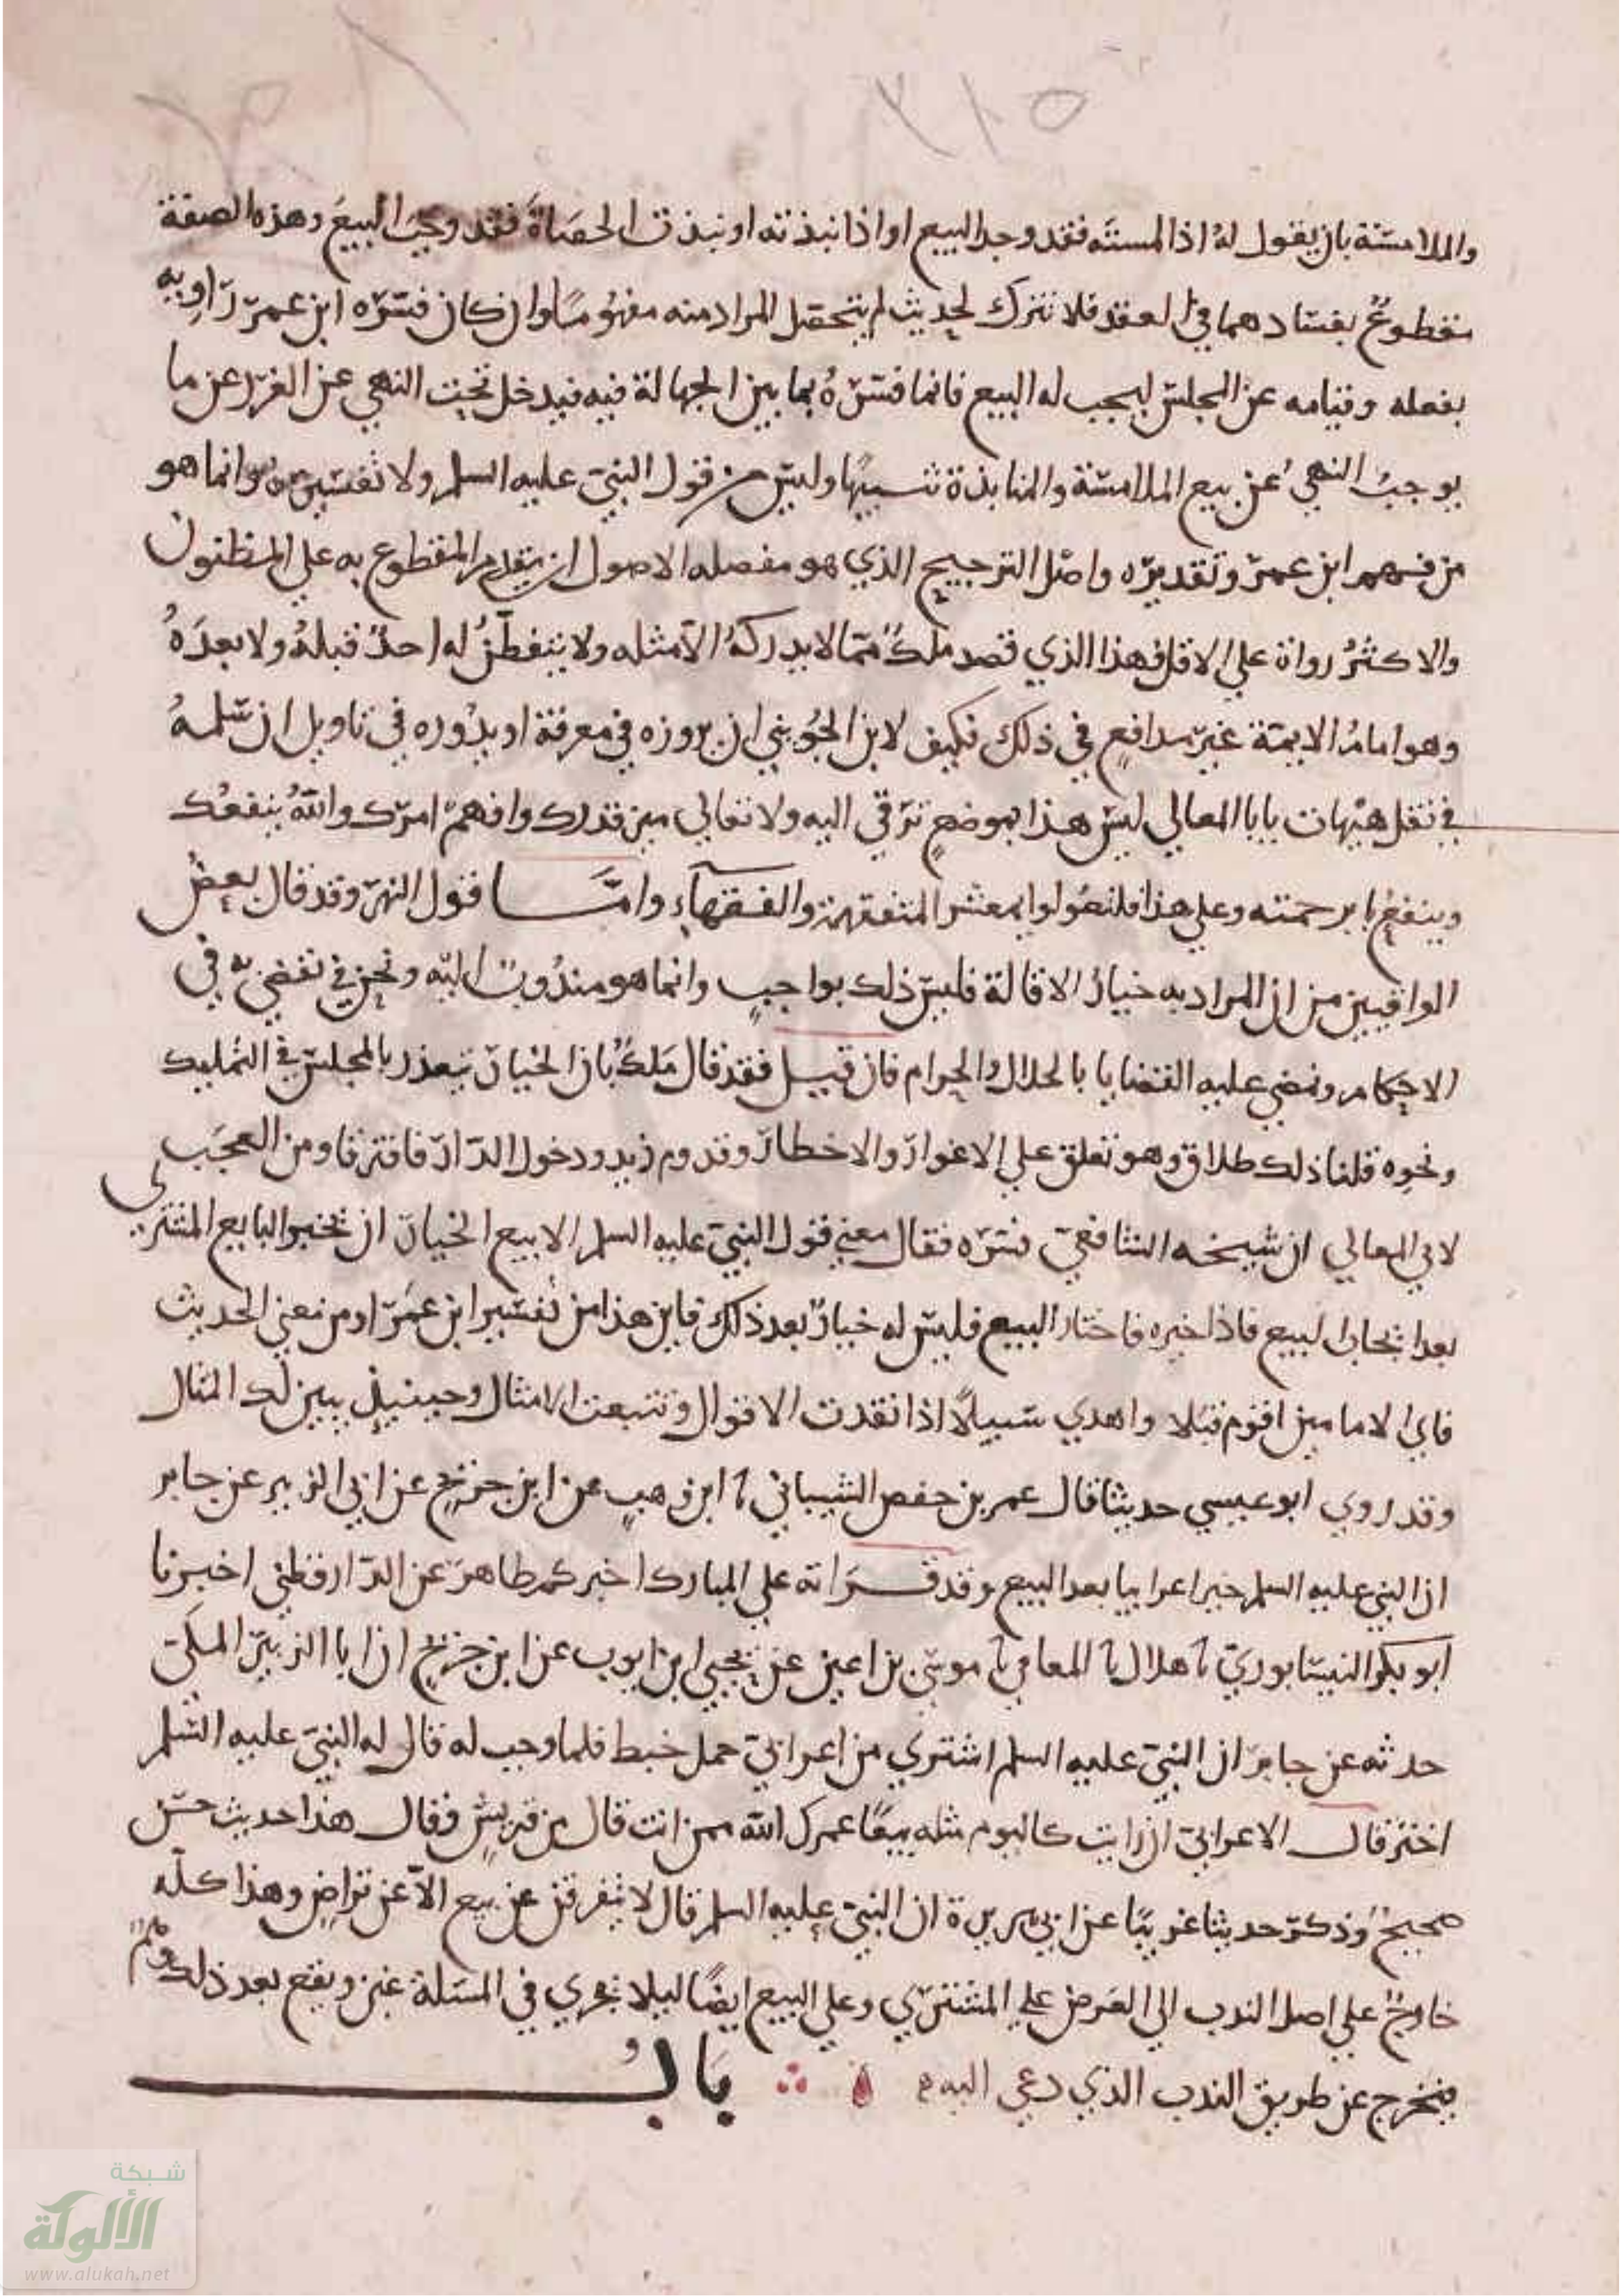 ٢١٥
والملامسة بان يقول له اذا لمسته فقد وجد البيع او اذا نبذته او نبذت الحصاة فقد وجب البيع وهذه الصفة
مقطوع بفسادهما في العقد فلا نترك لحديث لم يتحصل المراد منه مفهوما وان كان فسره ابن عمر راويه
بفعله وقيامه عن المجلس ليجب له البيع فانما فسره بما بين الجهالة فيه فيدخل تحت النهي عن الغرر عن ما
يوجب النهي عن بيع الملامسة والمنابذة شبيها وليس من قول النبي عليه السلم ولا تفسيره وانما هو
من فهم ابن عمر وتقديره واصل الترجيح الذي هو مفصله الاصول ان يقدم المقطوع به على المظنون
والاكثر رواة على الاقل فهذا الذي قصد ملك مما لا يدركه الا مثله ولا يتفطن له احد قبله ولا بعده
وهو امام الايمة غير مدافع في ذلك فكيف لابن الجويني ان يروزه في معرفة او يدوره في تاويل ان سلمه
في نقل هيهات يابا المعالي ليس هذا بموضع ترقي اليه ولا تعالي ميز قدرك وافهم امرك والله ينفعك
وينفع بك برحمته وعلى هذا فلتعولوا يا معشر المتفقهة والفقهاء واما قول النهر وقد قال بعض
الواقيين من ان المراد به خيار الاقالة فليس ذلك بواجب وانما هو مندوب اليه ونحن في نقضي به في
الاحكام ونمضي عليه القضايا بالحلال والحرام فان قيل فقد قال ملك بان الخيار يتعذر بالمجلس في التمليك
ونحوه قلنا ذلك طلاق وهو تعلق على الاغرار والاخطار وقدوم زيد ودخول الدار فافترقا ومن العجب
لابي المعالي ان شيخه الشافعي فسره فقال معنى قول النبي عليه السلم الا بيع الخيار ان يخير البايع المشتري
بعد ايجاب البيع فاذا خيره فاختار البيع فليس له خيار بعد ذلك فاين هذا من تفسير ابن عمر او من معنى الحديث
فاي الامامين اقوم قيلا واهدي سبيلا اذا نقدت الاقوال وتتبعت الامثال وحينيذ يبين لك المثال
وقد روي ابو عيسي حديثا قال عمر بن حفص الشيباني نا ابن وهب عن ابن جريج عن ابي الزبير عن جابر
ان النبي عليه السلم خير اعرابيا بعد البيع وقد قراته علي المبارك اخبركم طاهر عن الدارقطني اخبرنا
ابو بكر النيسابوري نا هلال نا المعافي نا موسى بن اعين عن يحيي ابن ايوب عن ابن جريج ان ابا الزبير المكي
حدثه عن جابر ان النبي عليه السلم اشتري من اعرابي حمل خبط فلما وجب له قال له النبي عليه السلم
اختر قال الاعرابي ان رايت كاليوم مثله بيعا عمرك الله ممن انت قال من قريش فقال هذا حديث حسن
صحيح وذكر حديثا غريبا عن ابي هريرة ان النبي عليه السلم قال لا يفرقن عن بيع الا عن تراض وهذا كله
خارج علي اصل الندب الي العرض علي المشتري وعلي البيع ايضا ليلا يجري في المسلة غبن ويقع بعد ذلك
فيخرج عن طريق الندب الذي دعي اليه باب
شبكة
الألوكة
www.alukah.net